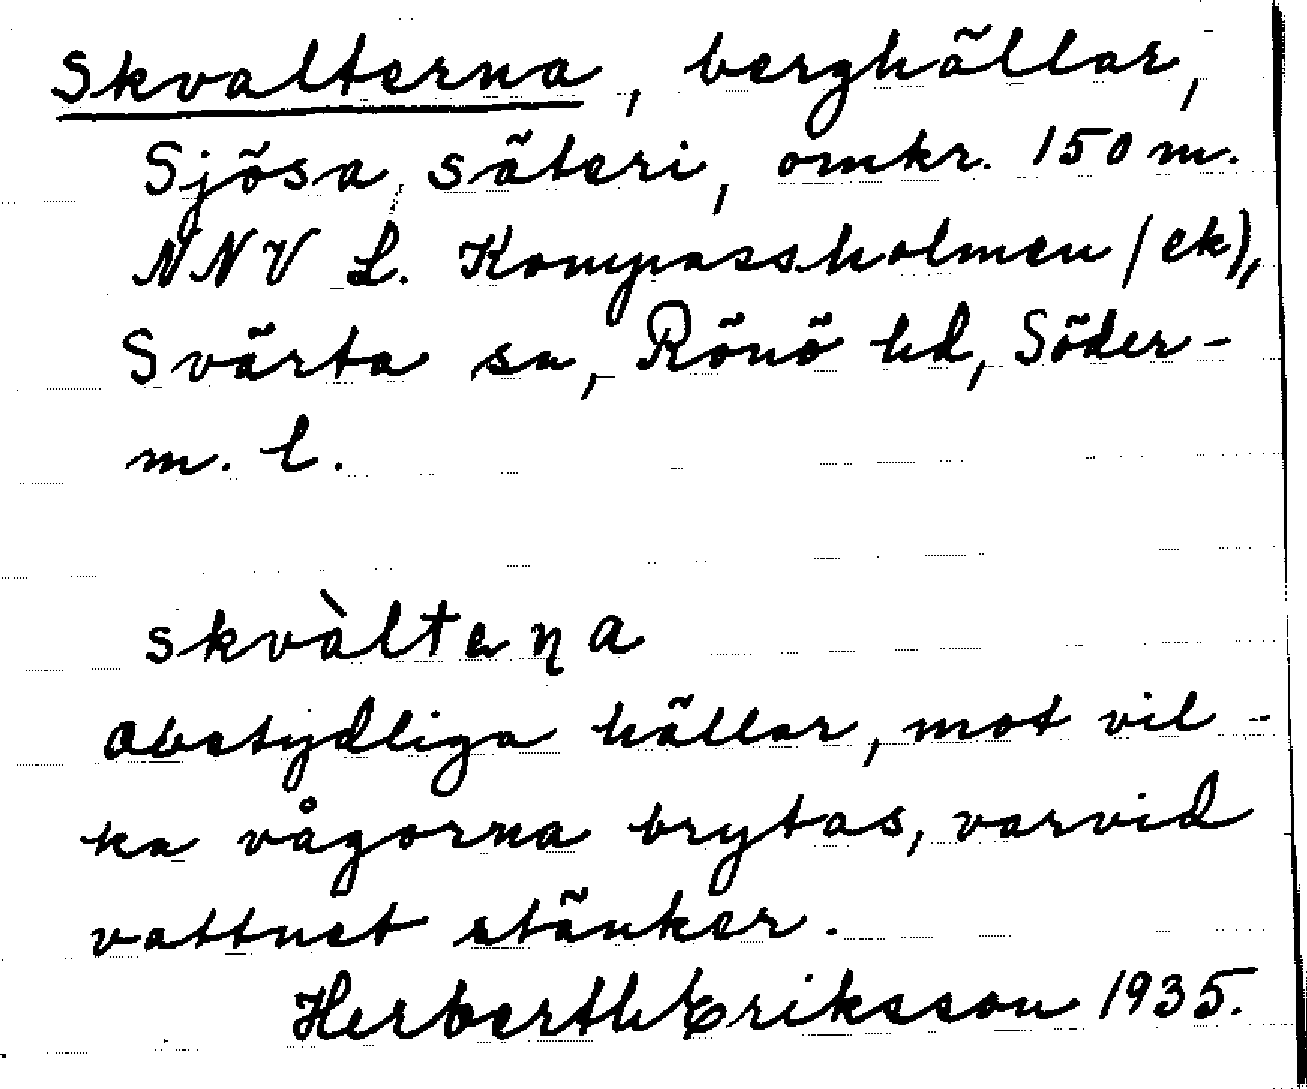 Skvalterna, berghällar,
Sjösa, säteri, omkr. 150 m.
NNV L. Kompassholmen (ek),
Svärta sn, Rönö hd, Söder-
m. l.
skvàlteṇa
Obetydliga hällar, mot vil-
ka vågorna brytas, varvid
vattnet stänker.
Herberth Eriksson 1935.